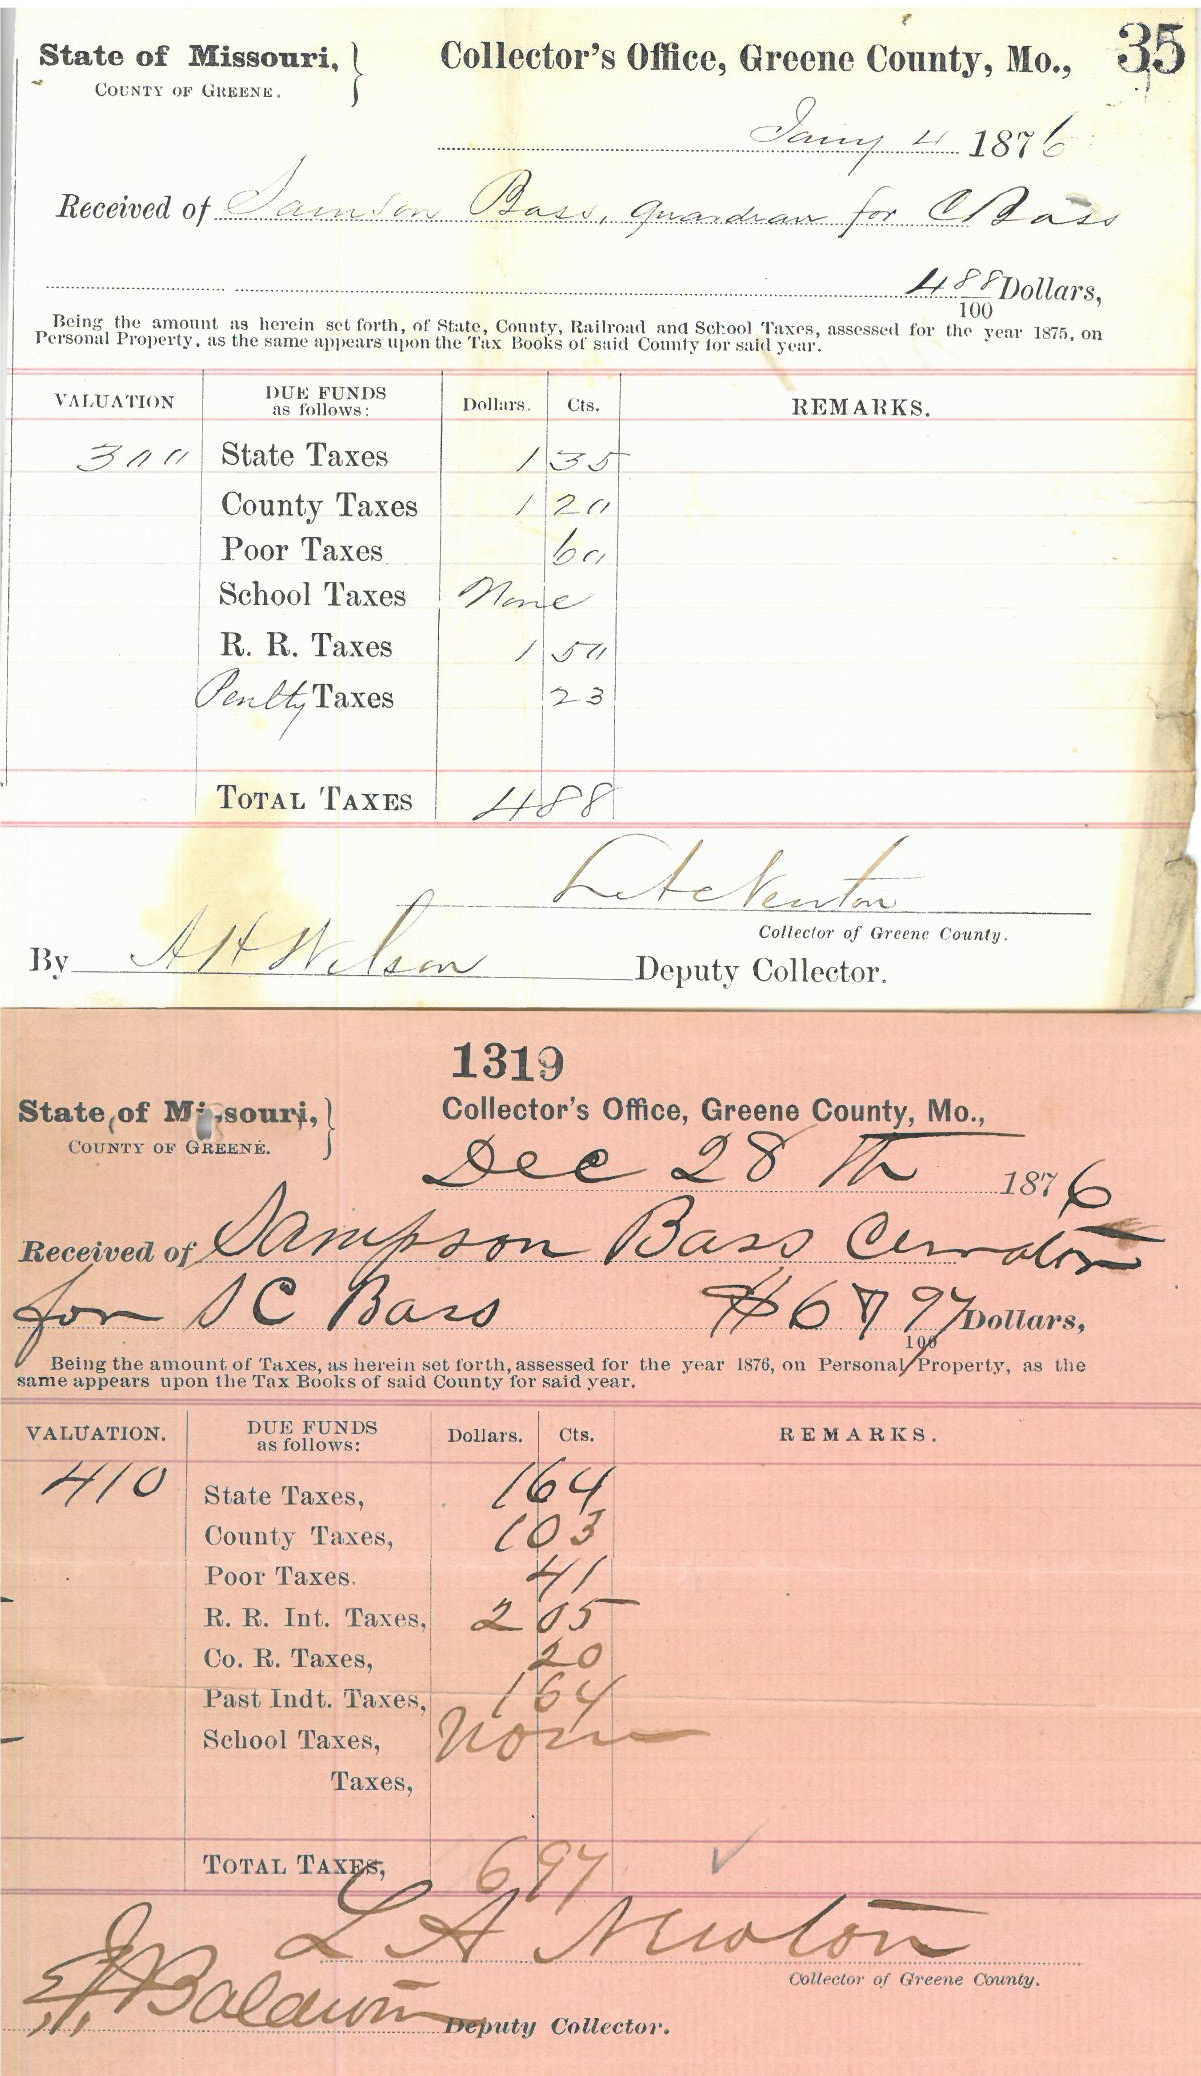 State of Missouri, } Collector's Office, Greene County, Mo., 35
COUNTY OF GREENE.
Jany 4 1876
Received of Samson Bass, guardian for C Bass
4 88/100 Dollars,
Being the amount as herein set forth, of State, County, Railroad and School Taxes, assessed for the year 1875, on
Personal Property, as the same appears upon the Tax Books of said County for said year.
VALUATION DUE FUNDS as follows: Dollars. Cts. REMARKS.
300 State Taxes 1 35
County Taxes 1 20
Poor Taxes 60
School Taxes None
R. R. Taxes 1 50
Penlty Taxes 23
TOTAL TAXES 4 88
Newton
Collector of Greene County.
By A H Wilson Deputy Collector.
1319
State of Missouri, } Collector's Office, Greene County, Mo.,
COUNTY OF GREENE.
Dec 28 th 1876
Received of Sampson Bass
for S C Bass $6 97/100 Dollars,
Being the amount of Taxes, as herein set forth, assessed for the year 1876, on Personal Property, as the
same appears upon the Tax Books of said County for said year.
VALUATION. DUE FUNDS as follows: Dollars. Cts. REMARKS.
410 State Taxes, 1 64
County Taxes, 1 03
Poor Taxes. 41
R. R. Int. Taxes, 2 05
Co. R. Taxes, 20
Past Indt. Taxes, 1 64
School Taxes, Non
Taxes,
TOTAL TAXES, 6 97
L A Newton
Collector of Greene County.
Baldwin Deputy Collector.